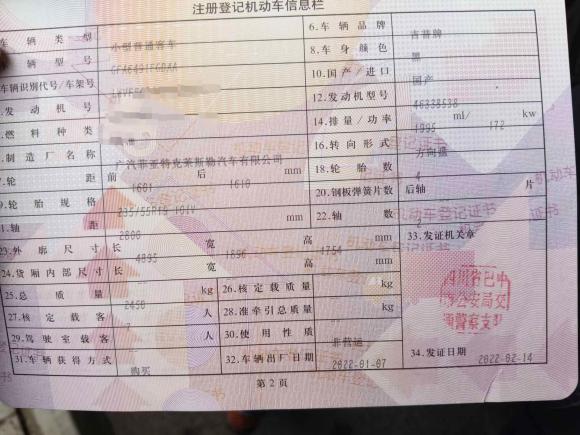 注册登记机动车信息栏
车辆类型 小型普通客车 6.车辆品牌 吉普牌
辆型号 GFA6491FGDAA 8.车身颜色 黑
车辆识别代号/车架号 10.国产/进口 国产
发动机号 12.发动机型号 46338538
燃料种类 14.排量/功率 1995 ml/ 172 kw
制造厂名称 广汽菲亚特克莱斯勒汽车有限公司 16.转向形式 方向盘
轮距 前 1601 后 1610 mm 18.轮胎数 4
轮胎规格 235/55R19 101V 20.钢板弹簧片数 后轴 片
轴距 2800 mm 22.轴数 2
23.外廓尺寸 长 4895 宽 1896 高 1754 mm 33.发证机关章
24.货厢内部尺寸 长 宽 高 mm
25.总质量 2450 kg 26.核定载质量 kg
27.核定载客 7 人 28.准牵引总质量 kg
29.驾驶室载客 人 30.使用性质 非营运
31.车辆获得方式 购买 32.车辆出厂日期 2022-01-07 34.发证日期 2022-02-14
四川省巴中
市公安局交
通警察支队
第2页
机动车登记证书